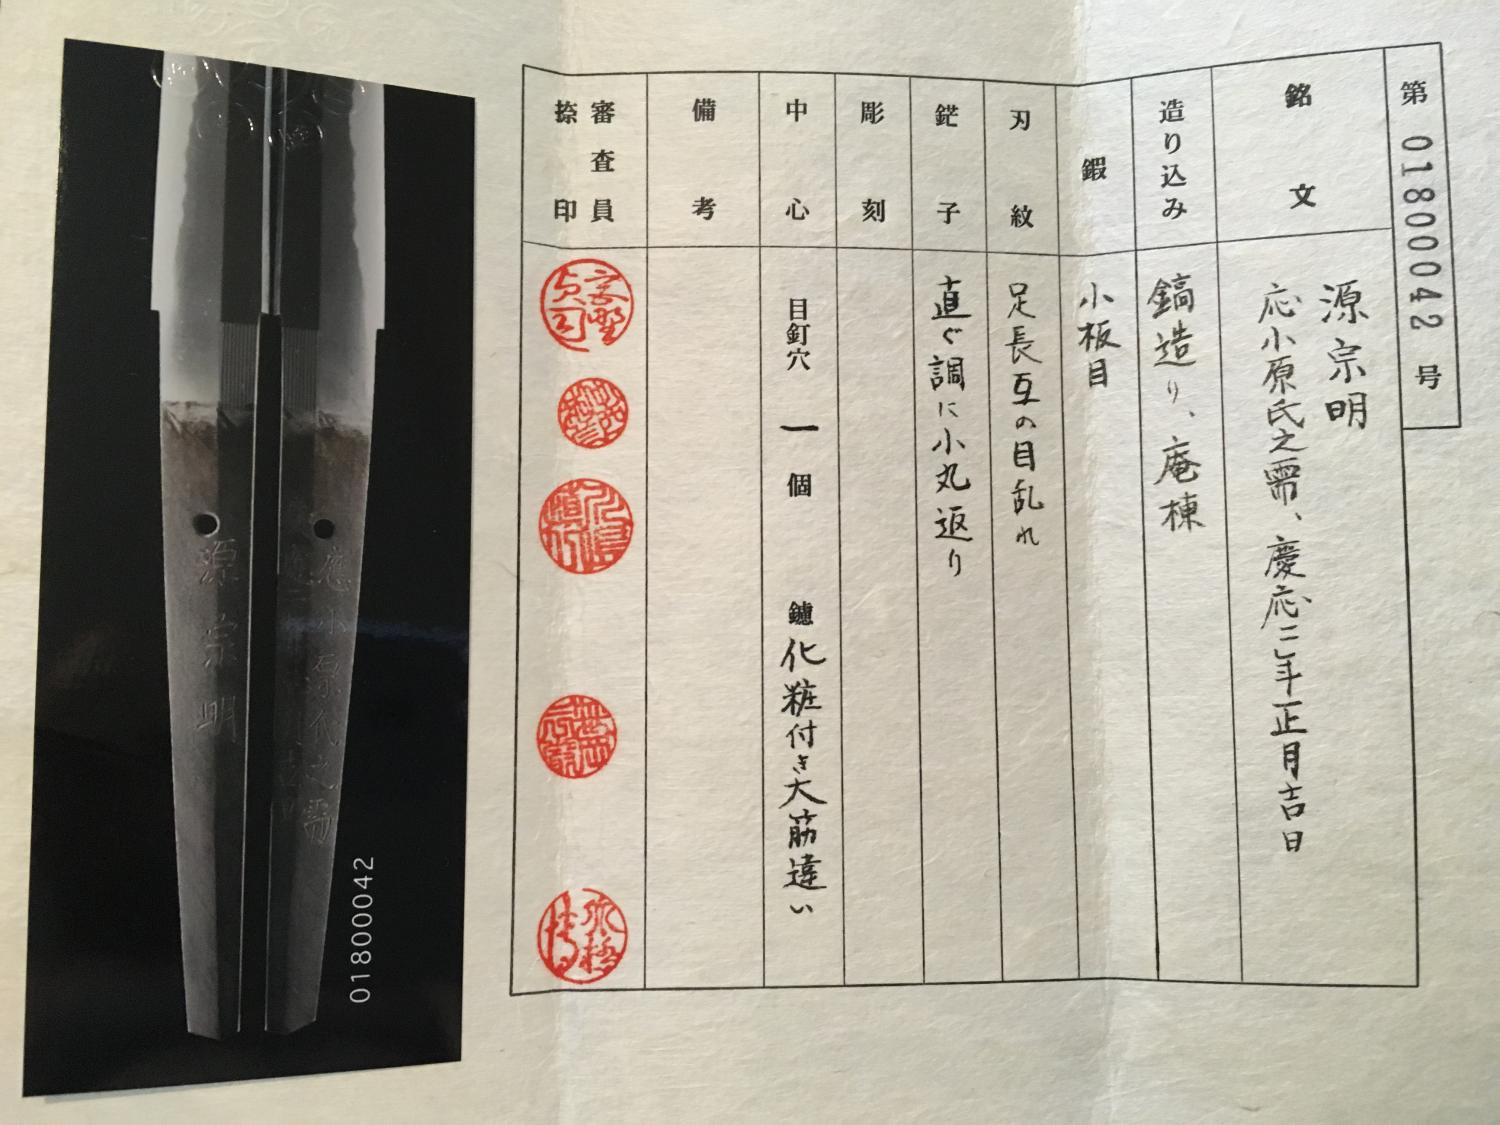 第 01800042 号
銘文
源宗明
応小原氏之需、慶応二年正月吉日
造り込み
鎬造り、庵棟
鍜
小板目
刃紋
足長互の目乱れ
鋩子
直ぐ調に小丸返り
彫刻
中心
目釘穴 一 個 鑢 化粧付き大筋違い
備考
審査員
捺印
應小原氏之需
源宗明
01800042